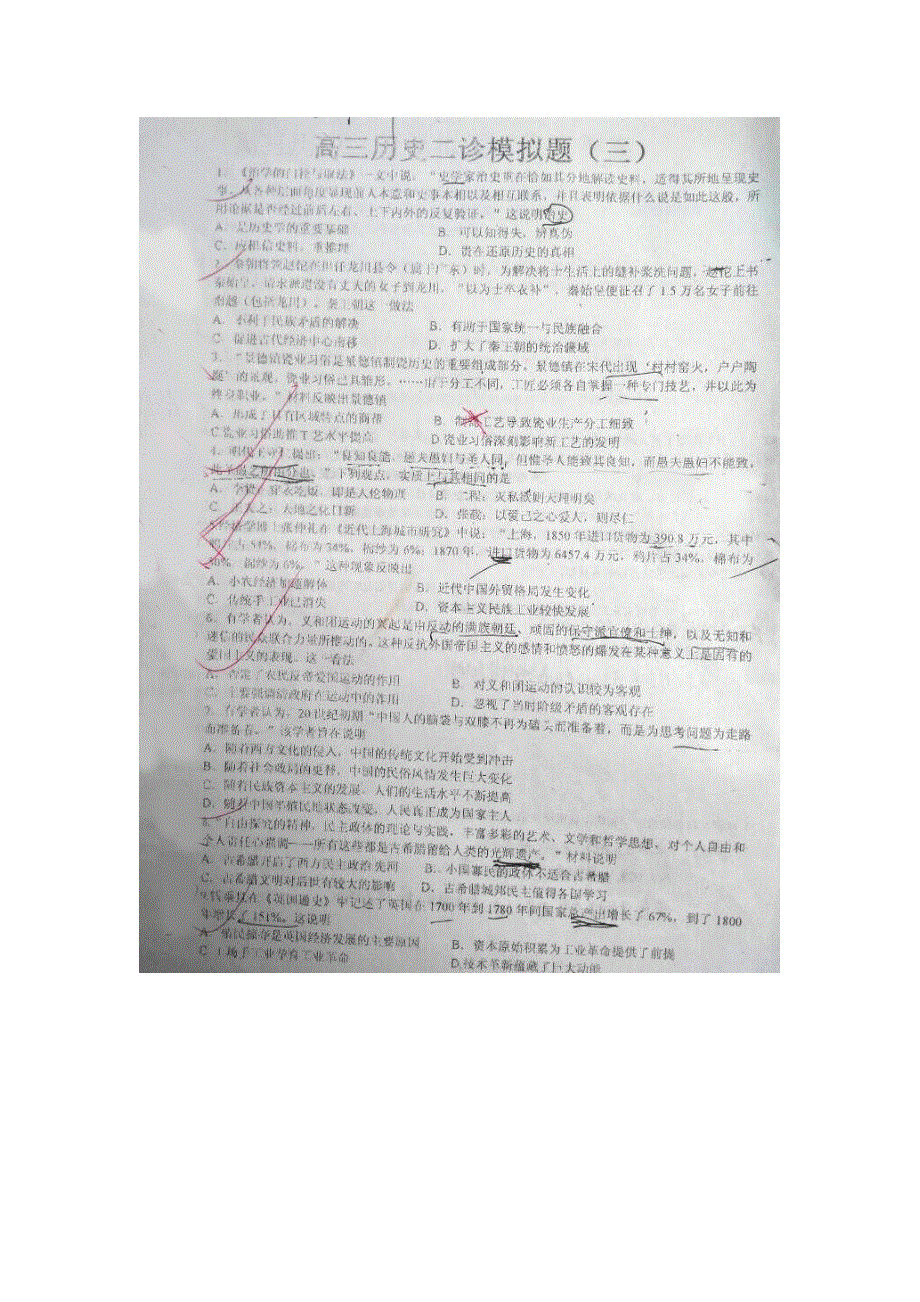 高三历史二诊模拟题（三）
1．《治学的门径与取法》一文中说："史学家治史重在恰如其分地解读史料，适得其所地呈现史
事，从各种层面角度显现前人本意和史事本相以及相互联系，并且表明依据什么说是如此这般，所
用论据是否经过前后左右、上下内外的反复验证。"这说明历史
A．是历史学的重要基础 B．可以知得失、辨真伪
C．应相信史料、重推理 D．贵在还原历史的真相
2．秦朝将领赵佗在担任龙川县令（属于广东）时，为解决将士生活上的缝补浆洗问题，赵佗上书
秦始皇，请求派遣没有丈夫的女子到龙川，"以为士卒衣补"，秦始皇便征召了1.5万名女子前往
南越（包括龙川）。秦王朝这一做法
A．不利于民族矛盾的解决 B．有助于国家统一与民族融合
C．促进古代经济中心南移 D．扩大了秦王朝的统治疆域
3．"景德镇瓷业习俗是景德镇制瓷历史的重要组成部分。景德镇在宋代出现'村村窑火，户户陶
埏'的景观，瓷业习俗已具雏形。……由于分工不同，工匠必须各自掌握一种专门技艺，并以此为
终身职业。"材料反映出景德镇
A．形成了具有区域特点的商帮 B．制瓷工艺导致瓷业生产分工细致
C.瓷业习俗助推工艺水平提高 D.瓷业习俗深刻影响新工艺的发明
4．明代王守仁提出："良知良能，愚夫愚妇与圣人同，但惟圣人能致其良知，而愚夫愚妇不能致，
此圣愚之所由分也。"下列观点，实质上与其相同的是
A．李贽：穿衣吃饭，即是人伦物理 B．二程：灭私欲则天理明矣
C．王夫之：天地之化日新 D．张载：以爱己之心爱人，则尽仁
5．经济学博士张仲礼在《近代上海城市研究》中说："上海，1850年进口货物为390.8万元，其中
鸦片占54%，棉布为34%，棉纱为6%；1870年，进口货物为6457.4万元，鸦片占34%，棉布为
，棉纱为6%。"这种现象反映出
A．小农经济加速解体 B．近代中国外贸格局发生变化
C．传统手工业已消失 D．资本主义民族工业较快发展
6．有学者认为，义和团运动的兴起是由反动的满族朝廷、顽固的保守派官僚和士绅，以及无知和
迷信的民众联合力量所推动的。这种反抗外国帝国主义的感情和愤怒的爆发在某种意义上是固有的
爱国主义的表现。这一看法
A．否定了农民反帝爱国运动的作用 B．对义和团运动的认识较为客观
C．主要强调清政府在运动中的作用 D．忽视了当时阶级矛盾的客观存在
7．有学者认为，20世纪初期"中国人的脑袋与双膝不再为磕头而准备着，而是为思考问题为走路
而准备着。"该学者旨在说明
A．随着西方文化的侵入，中国的传统文化开始受到冲击
B．随着社会政局的更替，中国的民俗风情发生巨大变化
C．随着民族资本主义的发展，人们的生活水平不断提高
D．随着中国半殖民地状态改变，人民真正成为国家主人
8．"自由探究的精神，民主政体的理论与实践，丰富多彩的艺术、文学和哲学思想，对个人自由和
个人责任心强调——所有这些都是古希腊留给人类的光辉遗产。"材料说明
A．古希腊开启了西方民主政治先河 B．小国寡民的政体不适合古希腊
C．古希腊文明对后世有较大的影响 D．古希腊城邦民主值得各国学习
在《英国通史》中记述了英国在1700年到1780年间国家总产出增长了67%，到了1800
年增长了151%。这说明
A．殖民掠夺是英国经济发展的主要原因 B．资本原始积累为工业革命提供了前提
C．工场手工业孕育工业革命 D.技术革新蕴藏了巨大动能